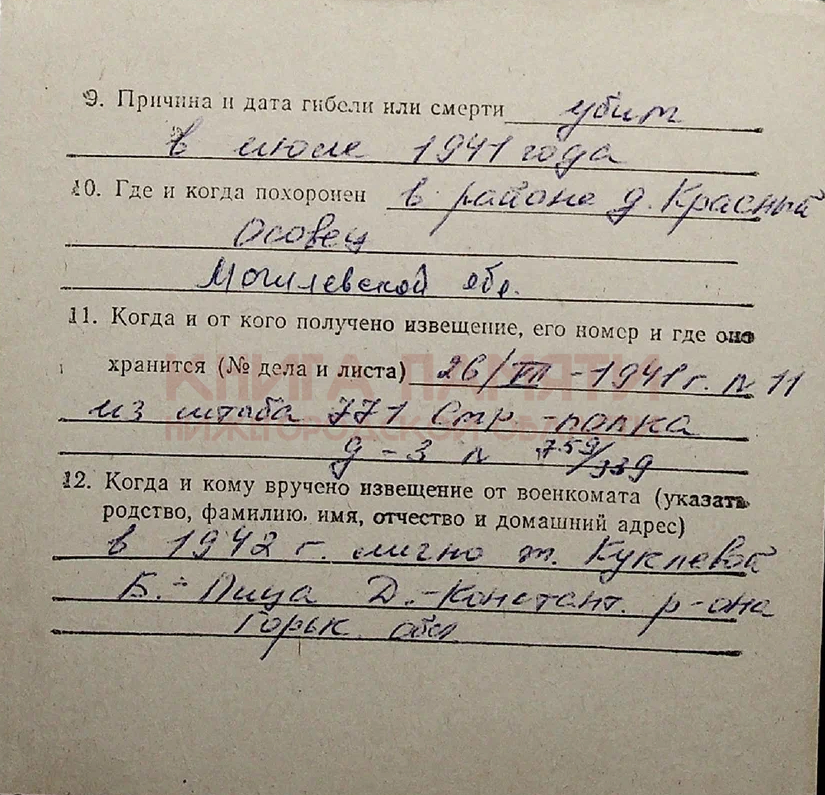 9. Причина и дата гибели или смерти убит
в июле 1941 года
10. Где и когда похоронен в районе д. Красный
Осовец
Могилевской обл.
11. Когда и от кого получено извещение, его номер и где оно
хранится (№ дела и листа) 26/VII-1941г. N 11
КНИГА ПАМЯТИ
из штаба 771 стр-полка
НИЖЕГОРОДСКОЙ ОБЛАСТИ
д-3 N 759/339
12. Когда и кому вручено извещение от военкомата (указать
родство, фамилию, имя, отчество и домашний адрес)
в 1942 г. лично т. Куклевой
Б.-Пица Д.-Констант. р-она
Горьк. обл